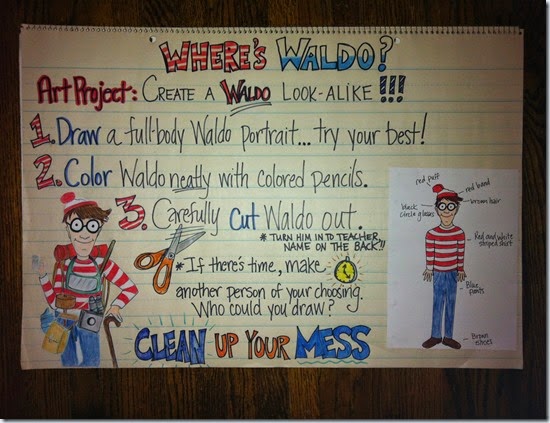 WHERE'S WALDO?
Art Project: CREATE A WALDO LOOK-ALIKE!!!
1. Draw a full-body Waldo portrait... try your best!
2. Color Waldo neatly with colored pencils.
3. Carefully cut Waldo out.
* TURN HIM IN TO TEACHER
NAME ON THE BACK!!
* If there's time, make
another person of your choosing.
Who could you draw?
CLEAN UP YOUR MESS
red puff
red band
brown hair
black
circle glasses
Red and white
striped shirt
Blue
pants
Brown
shoes